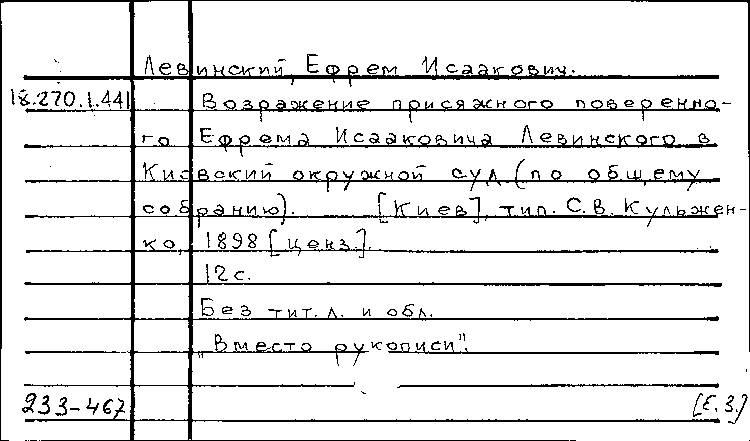 Левинский, Ефрем Исаакович.
18.270.1.441 Возражение присяжного поверенно-
го Ефрема Исааковича Левинского в
Киевский окружной суд (по общему
собранию). [Киев], тип. С.В. Кульжен-
ко, 1898 [ценз.].
12 с.
Без тит. л. и обл.
„Вместо рукописи".
233-467 [Е.З.]